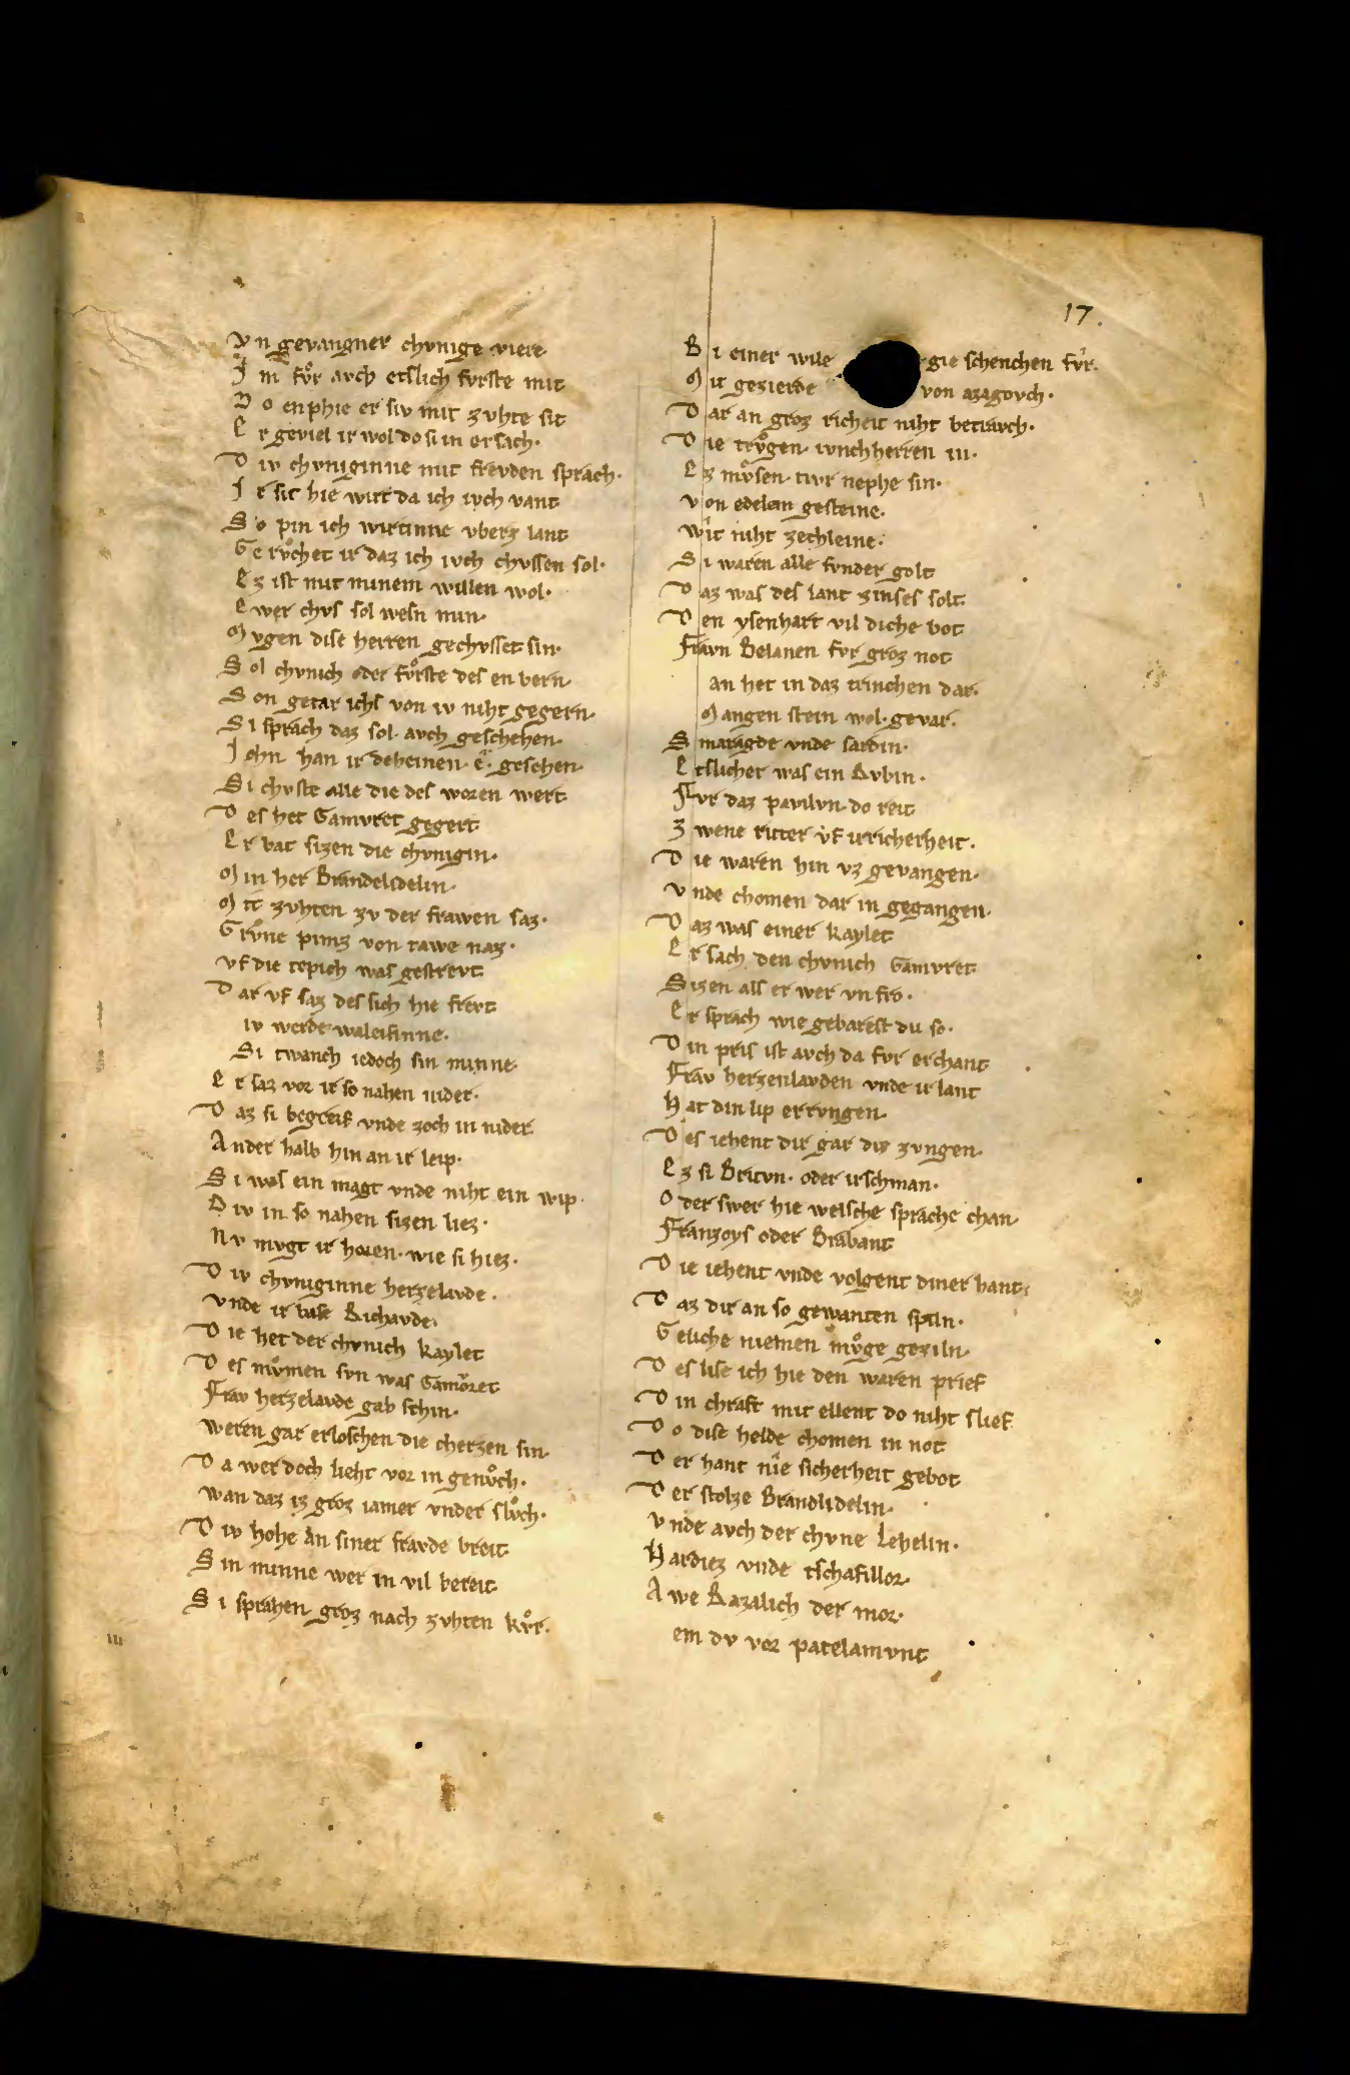 17.
Vn gevangner chvnige viere
Im fvͦr avch etslich fvrste mit
Do enphie er siv mit zvhte sit
Er geviel ir wol do si in ersach.
Div chvniginne mit frevden sprach.
Ir sit hie wirt da ich ivch vant
So pin ich wirtinne vberz lant
Gervͦchet ir daz ich ivch chvssen sol.
Ez ist mit minem willen wol.
Ewer chvs sol wesn min.
Mvgen dise herren gechvsset sin.
Sol chvnich oder fvͦrste des enbern.
Son getar ichs von iv niht gegern.
Si sprach daz sol avch geschehen.
Ichn han ir deheinen. e. gesehen.
Si chvste alle die des woren wert
Des het Gamvret gegert
Er bat sizen die chvnigin.
Min her Brandelidelin.
Mit zvhten zv der frawen saz.
Grvͦne pinz von tawe naz.
vf die tepich was gestrevt
Dar vf saz des sich hie frevt
iv werde waleisinne.
Si twanch iedoch sin minne
Er saz vor ir so nahen nider.
Daz si begreif vnde zoch in nider
Ander halb hin an ir leip.
Si was ein magt vnde niht ein wip.
Div in so nahen sizen liez.
Nv mvgt ir horen. wie si hiez.
Div chvniginne herzelavde.
vnde ir base Richavde.
Die het der chvnich kaylet
Des mvͦmen svn was Gamvret
Frav herzelavde gab schin.
weren gar erloschen die cherzen sin.
Da wer doch lieht vor in genvͦch.
wan daz iz groz iamer vnder slvͦch.
Div hohe an siner fravde breit
Sin minne wer in vil bereit
Si sprahen grvz nach zvhten kvͦr.
Bi einer wile gie schenchen fvr.
Mit gezierde von azagovch.
Dar an groz richeit niht betravch.
Die trvͦgen. ivnchherren in.
Ez mvͦsen. tivr nephe sin.
von edelem gesteine.
wit niht zechleine.
Si waren alle svnder golt
Daz was des lant zinses solt
Den ysenhart vil diche bot
Fravn Belanen fvr groz not
an het in daz trinchen dar.
Mangen stein wol. gevar.
Smaragde vnde sardin.
Etslicher was ein Rvbin.
Fvr daz pavilvn do reit
Zwene ritter vf ir richerheit.
Die waren hin vz gevangen.
vnde chomen dar in gegangen.
Daz was einer kaylet
Er sach den chvnich Gamvret
Sizen als er wer vnfro.
Er sprach wie gebarest du so.
Din pris ist avch da fvr erchant
Frav herzenlavden vnde ir lant
Hat din lip errvngen.
Des iehent dir gar diz zvngen.
Ez si Britvn. oder irschman.
Oder swer hie welsche sprache chan.
Franzoys oder Brabant
Die iehent vnde volgent diner hant.
Daz dir an so gewanten spiln.
Geliche niemen mvͦge geziln.
Des lise ich hie den waren prief
Din chraft mit ellent do niht slief
Do dise helde chomen in not
Der hant nie sicherheit gebot
Der stolze Brandlidelin.
vnde avch der chvne Lehelin.
Hardiez vnde tschafillor.
Awe Razalich der mor.
em dv vor patelamvnt
III